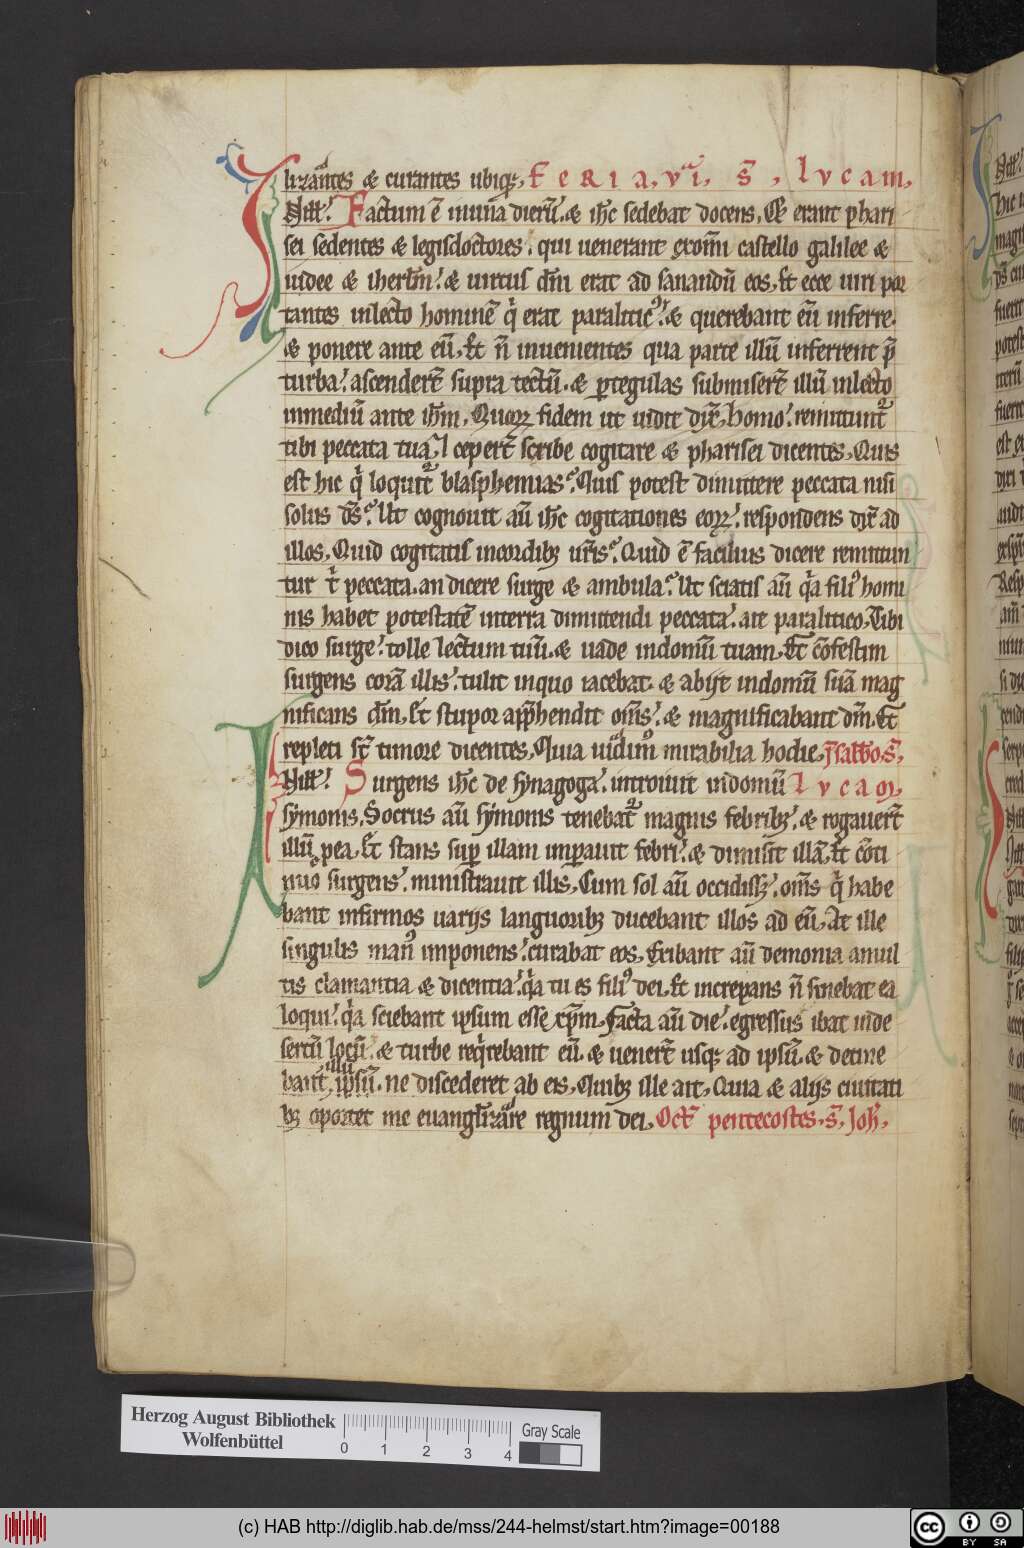 lizantes ⁊ curantes ubiqȝ. FERIA. vıᵃ. S̄. lucam.
In illꝉ. Factum ē in una dierū. ⁊ ihc̄ sedebat docens. Et erant phari
sei sedentes ⁊ legisdoctores. qui uenerant ex om̄i castello galilee ⁊
iudee ⁊ iherlm̄. ⁊ uirtus dn̄i erat ad sanandū eos. Et ecce uiri por
tantes inlecto hominē q̇ erat paralitic⁹. ⁊ querebant eū inferre.
⁊ ponere ante eū. Et n̄ inuenientes qua parte illū inferrent p̄
turba. ascender̄t supra tectū. ⁊ ꝑ tegulas submiser̄t illū inlecto
inmediū ante ihm̄. Quoꝝ fidem ut uidit dix̄. homo. remittunt᷑
tibi peccata tua. ⁊ ceper̄t scribe cogitare ⁊ pharisei dicentes. Quis
est hic q̇ loquit᷑ blasphemias. Quis potest dimittere peccata nisi
solus ds̄. Ut cognouit aū ihc̄ cogitationes eoꝝ. respondens dix̄ ad
illos. Quid cogitatis incordibȝ ur̄is. Quid ē facilius dicere remittun
tur t̉ peccata. an dicere surge ⁊ ambula. Ut sciatis aū q̇a fili⁹ homi
nis habet potestatē interra dimittendi peccata. ait paralitico. Tibi
dico surge. tolle lectum tuū. ⁊ uade indomū tuam. Et cōfestim
surgens corā illis. tulit inquo iacebat. ⁊ abijt indomū suā mag
nificans dm̄. Et stupor app̄hendit om̄s. ⁊ magnificabant dm̄. Et
repleti st̄ timore dicentes. Quia uidim⁹ mirabilia hodie. Ī sabbo. S̄.
In illꝉ. Surgens ihc̄ de synagoga. introiuit indomū lucam.
symonis. Socrus aū symonis tenebat᷑ magnis febribȝ. ⁊ rogauer̄t
illū pea. Et stans sup̄ illam imꝑauit febri. ⁊ dimisit illā. Et cōti
nuo surgens. ministrauit illis. Cum sol aū occidissȝ. om̄s q̇ habe
bant infirmos uarijs languoribȝ ducebant illos ad eū. At ille
singulis man⁹ imponens. curabat eos. Exibant aū demonia amul
tis clamantia ⁊ dicentia. q̇a tu es fili⁹ dei. Et increpans n̄ sinebat ea
loqui. q̇a sciebant ipsum esse xp̄m. Facta aū die. egressus ibat inde
sertū locū. ⁊ turbe req̇rebant eū. ⁊ uener̄t usqȝ ad ipsū. ⁊ detine
bant illū ipsū. ne discederet ab eis. Quibȝ ille ait. Quia ⁊ alijs ciuitati
bȝ oportet me euanglizare regnum dei. Oct̄ pentecostes. S̄. Joh̄.
Herzog August Bibliothek
Wolfenbüttel
0 1 2 3 4
Gray Scale
(c) HAB http://diglib.hab.de/mss/244-helmst/start.htm?image=00188
cc BY SA